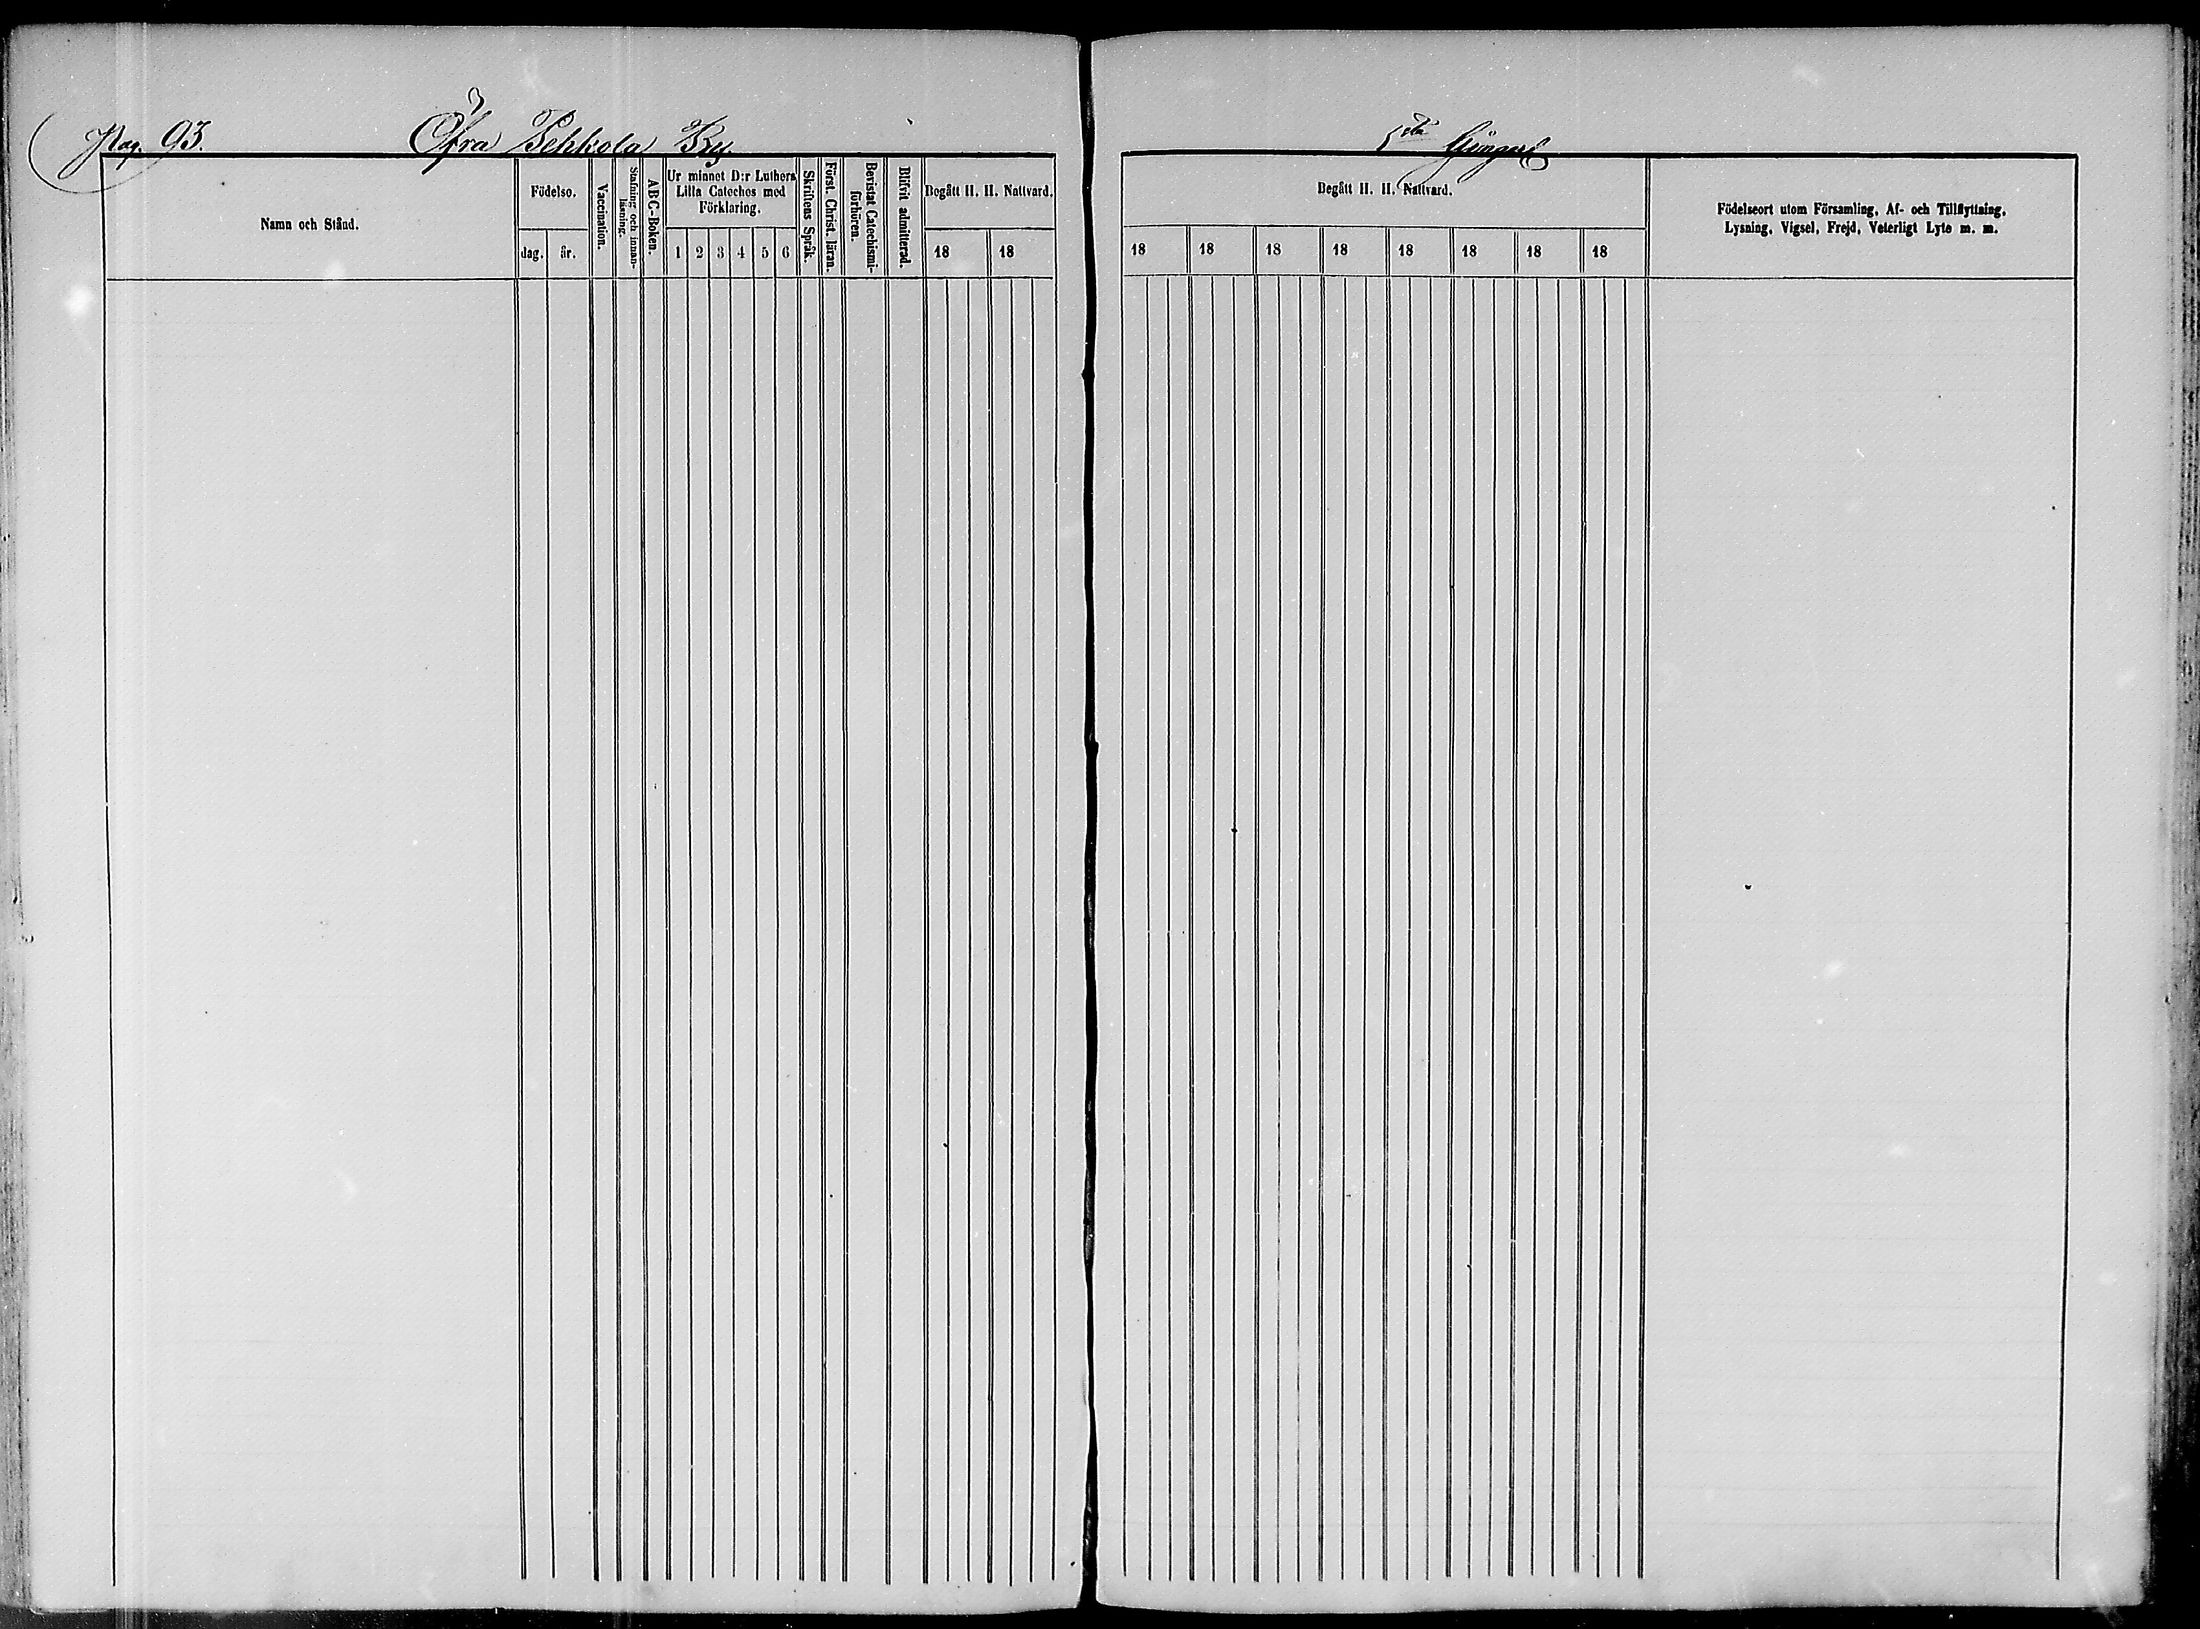 Pag. 93.
Öfra Pekkola By.
Namn och Stånd.
Födelse.
dag.
år.
Vaccination.
Stafning och innan-
läsning.
ABC-Boken.
Ur minnet D:r Luthers
Lilla Cateches med
Förklaring.
1 2 3 4 5 6
Skriftens Språk.
Först. Christ. läran.
Bevistat Catechismi-
förhören.
Blifvit admitterad.
Begått H. H. Nattvard.
18 18
5
Begått H. H. Nattvard.
18 18 18 18 18 18 18 18
Födelseort utom Församling, Af- och Tillflyttning,
Lysning, Vigsel, Frejd, Veterligt Lyte m. m.